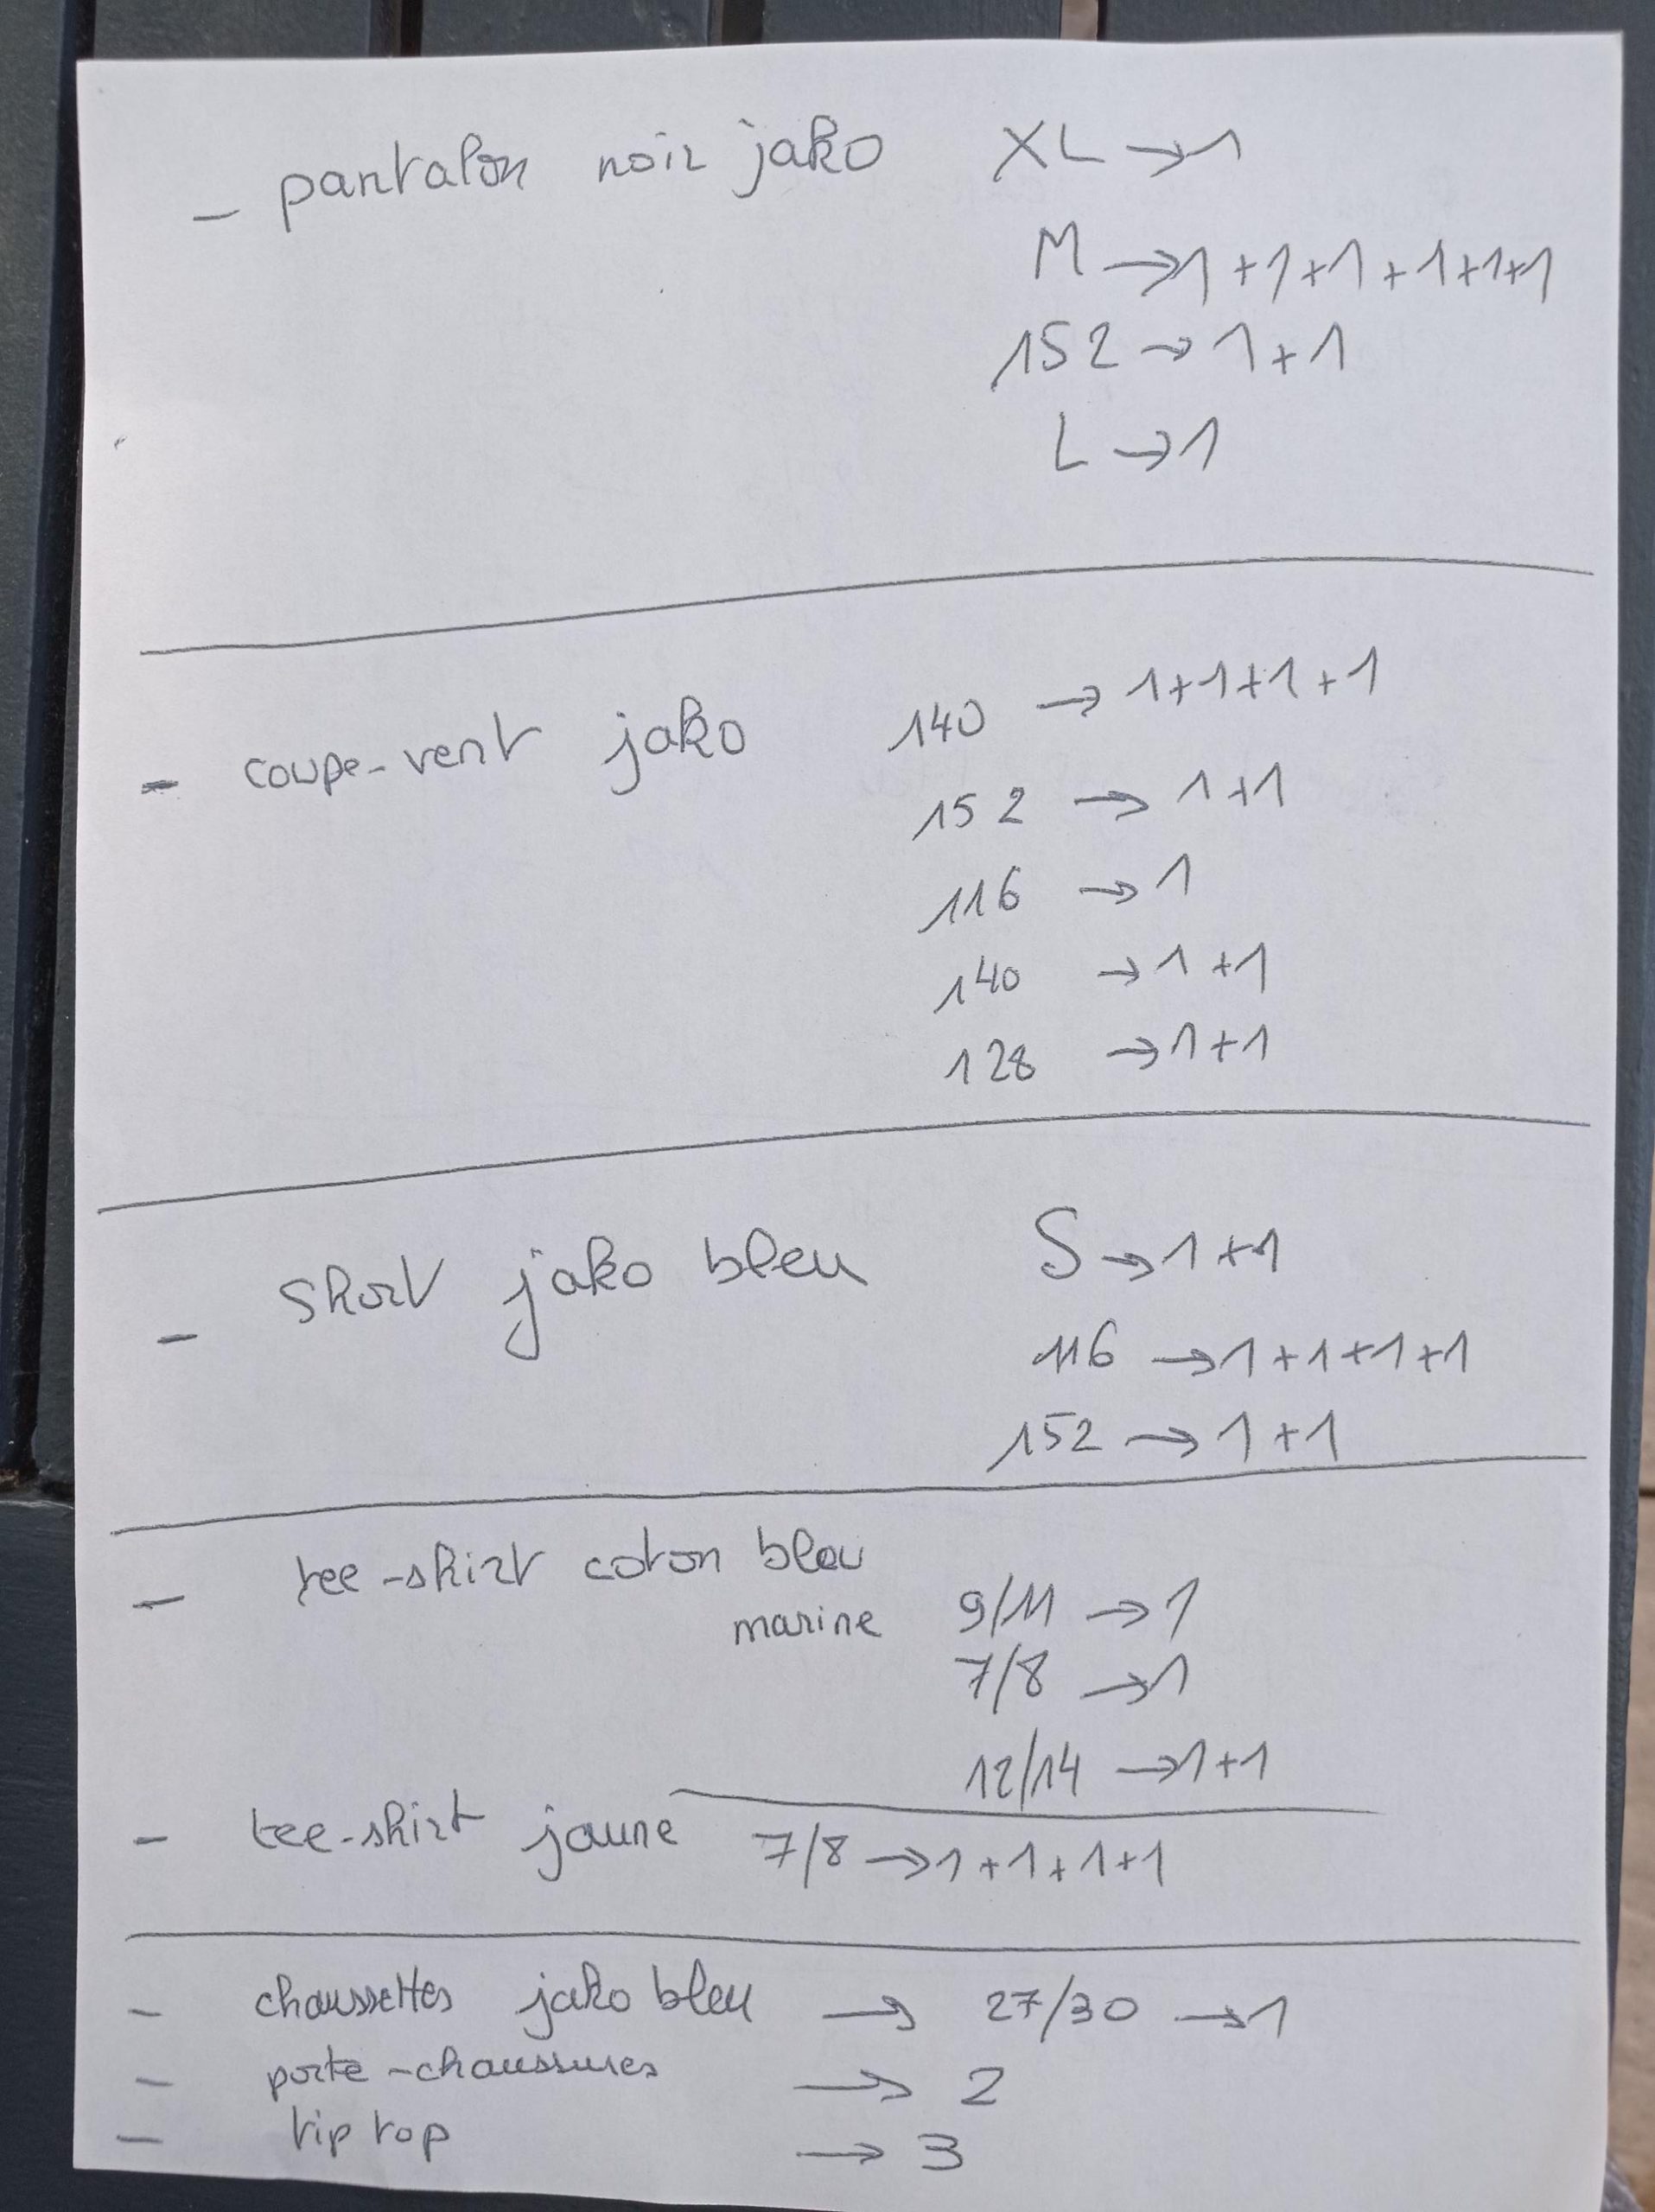 - pantalon noir jako XL → 1
M → 1+1+1+1+1+1
152 → 1+1
L → 1
- coupe-vent jako 140 → 1+1+1+1
152 → 1+1
116 → 1
140 → 1+1
128 → 1+1
- short jako bleu S → 1+1
116 → 1+1+1+1
152 → 1+1
- tee-shirt coton bleu
marine 9/11 → 1
7/8 → 1
12/14 → 1+1
- tee-shirt jaune 7/8 → 1+1+1+1
- chaussettes jako bleu → 27/30 → 1
- porte-chaussures → 2
- tip top → 3